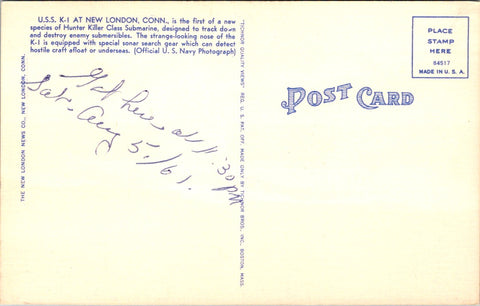 U.S.S. K-1 AT NEW LONDON, CONN., is the first of a new
species of Hunter Killer Class Submarine, designed to track down
and destroy enemy submersibles. The strange-looking nose of the
K-1 is equipped with special sonar search gear which can detect
hostile craft afloat or underseas. (Official U. S. Navy Photograph)
THE NEW LONDON NEWS CO., NEW LONDON, CONN.
Got here at 11:30 PM
Sat. Aug 5/61.
"TICHNOR QUALITY VIEWS" REG. U. S. PAT. OFF. MADE ONLY BY TICHNOR BROS., INC., BOSTON, MASS.
POST CARD
PLACE
STAMP
HERE
84517
MADE IN U. S. A.